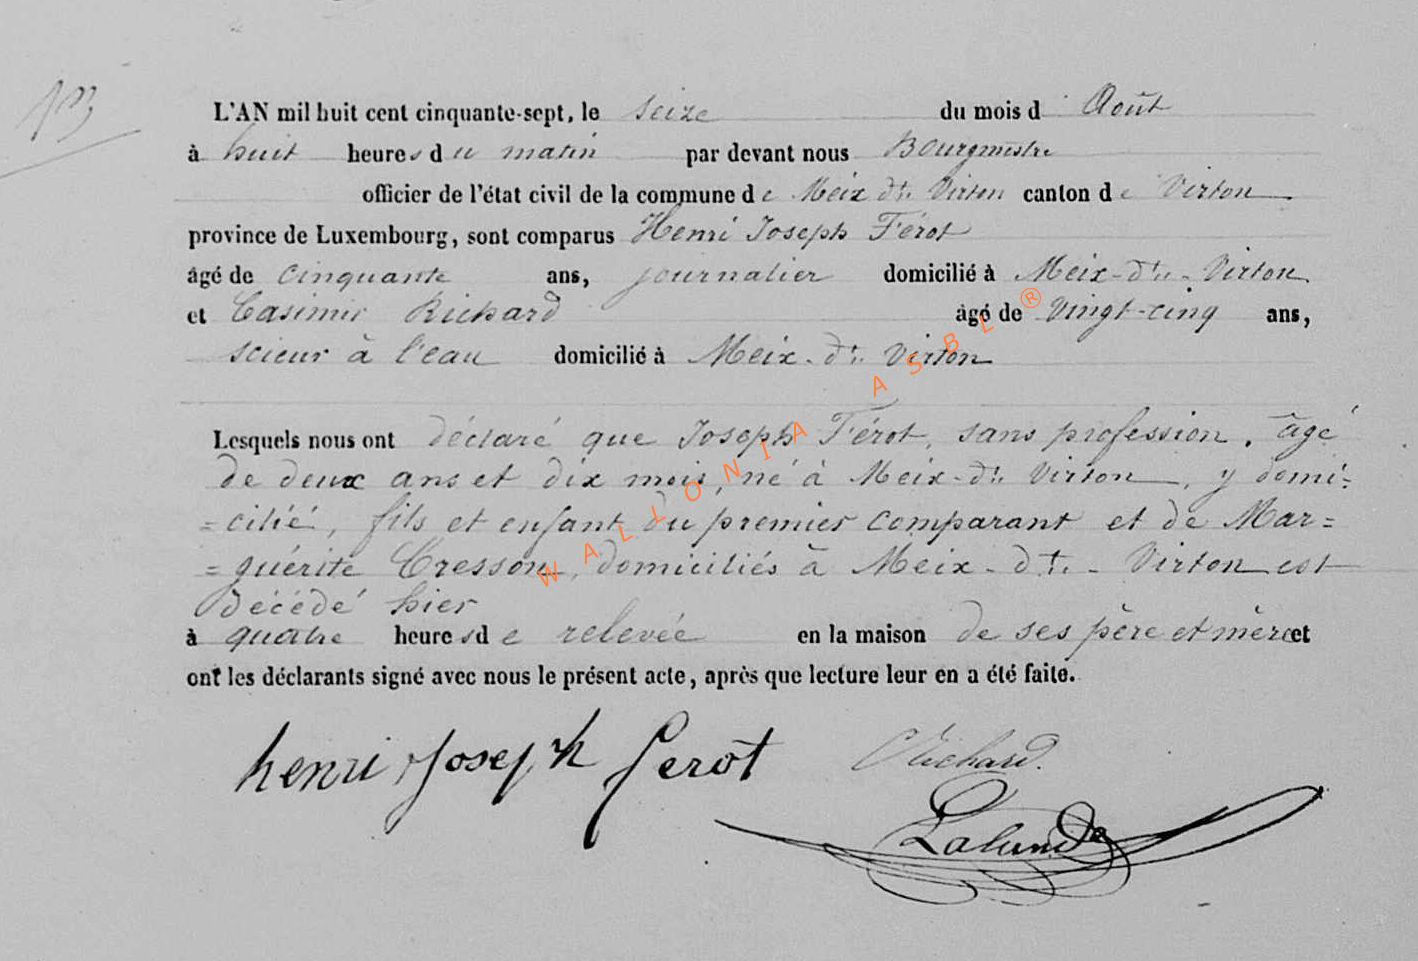 L'AN mil huit cent cinquante-sept, le seize du mois d'Août
à huit heures du matin par devant nous Bourgmestre
officier de l'état civil de la commune de Meix-dt-Virton canton de Virton
province de Luxembourg, sont comparus Henri Joseph Férot
âgé de cinquante ans, journalier domicilié à Meix-dt-Virton
et Casimir Richard âgé de vingt-cinq ans,
scieur à l'eau domicilié à Meix-dt-Virton
Lesquels nous ont déclaré que Joseph Férot, sans profession, âgé
de deux ans et dix mois, né à Meix-dt-Virton, y domi-
=cilié, fils et enfant du premier comparant et de Mar=
=guérite Cresson, domiciliés à Meix-dt-Virton est
décédé hier
à quatre heures de relevée en la maison de ses père et mère et
ont les déclarants signé avec nous le présent acte, après que lecture leur en a été faite.
henri Joseph ferot CRichard.
WALLONIA ASBL ®